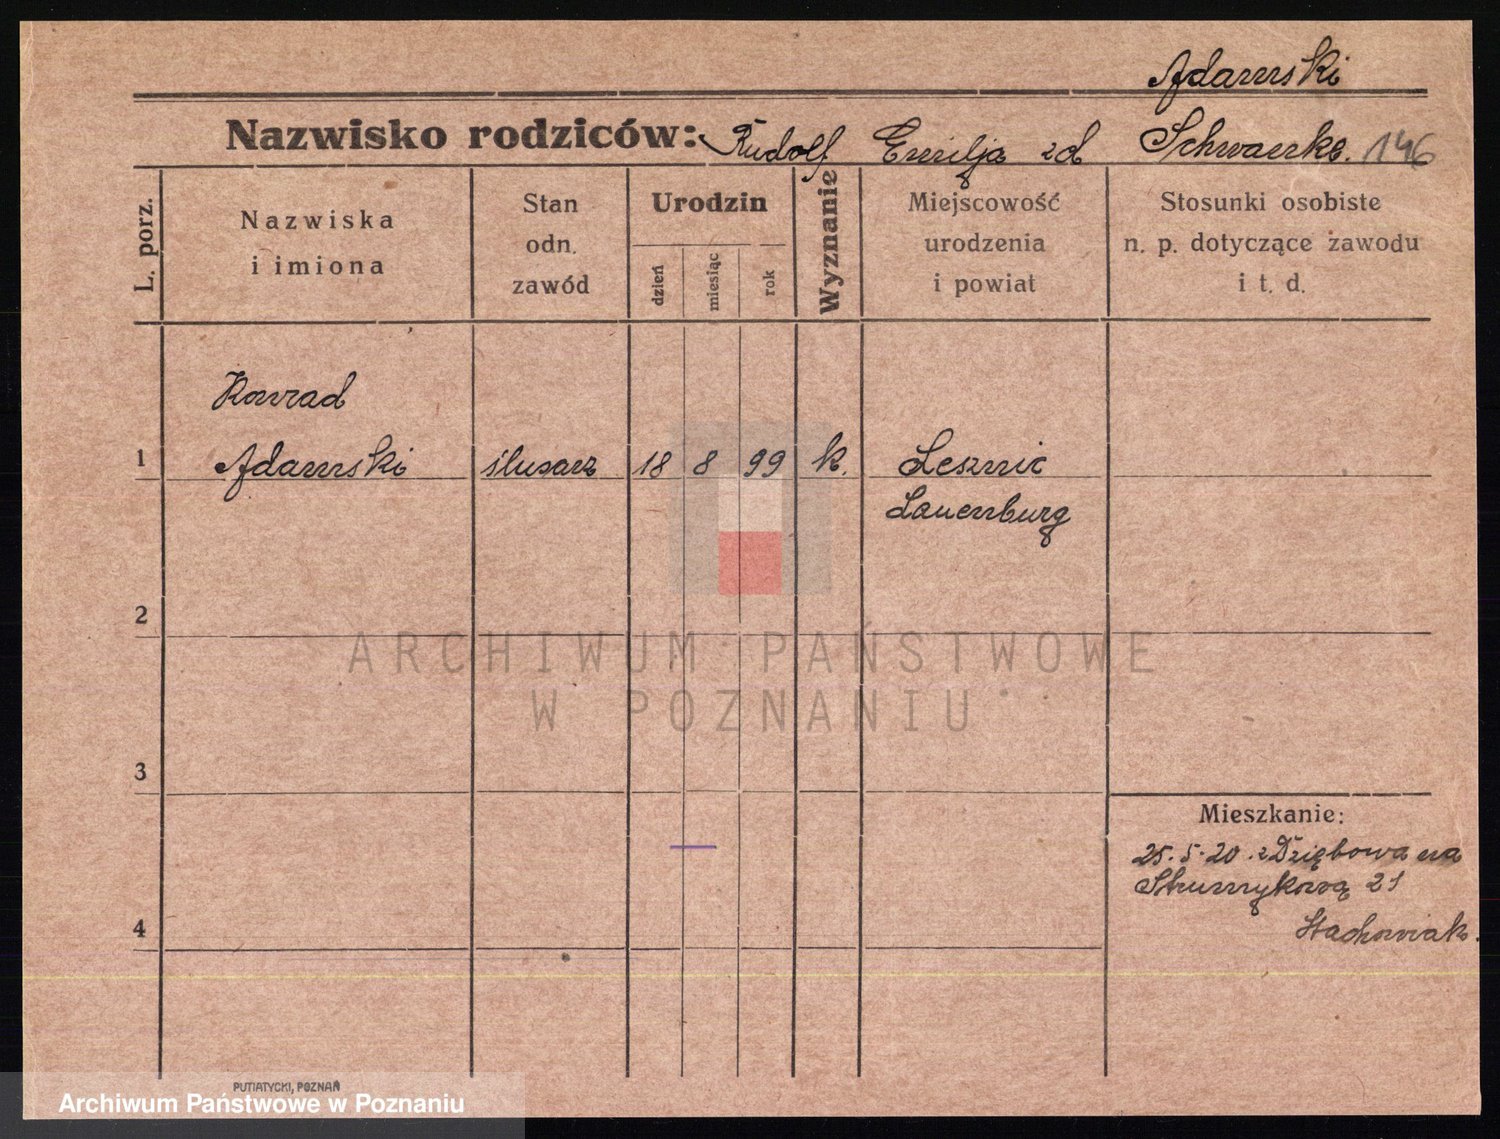 Adamski
Nazwisko rodziców: Rudolf Emilja zd Schwanke. 146
L. porz.
Nazwiska
i imiona
Stan
odn.
zawód
Urodzin
dzień
miesiąc
rok
Wyznanie
Miejscowość
urodzenia
i powiat
Stosunki osobiste
n. p. dotyczące zawodu
i t. d.
Konrad
1 Adamski ślusarz 18 8 99 k. Lesznic
Lauenburg
2
ARCHIWUM PAŃSTWOWE
W POZNANIU
3
Mieszkanie:
25.5.20. z Dziębowa na
Strumykową 21
Stachowiak.
4
PUTIATYCKI, POZNAŃ
Archiwum Państwowe w Poznaniu